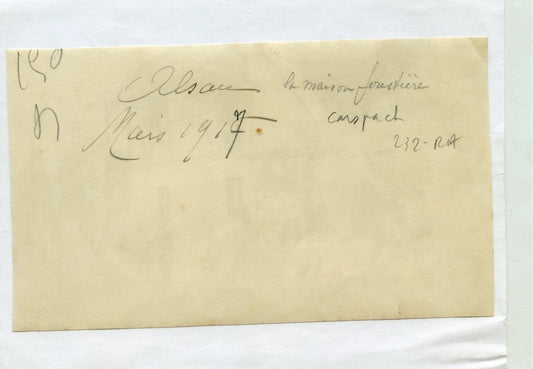 Alsace la maison forestière
Mars 1917
carspach
232-RA